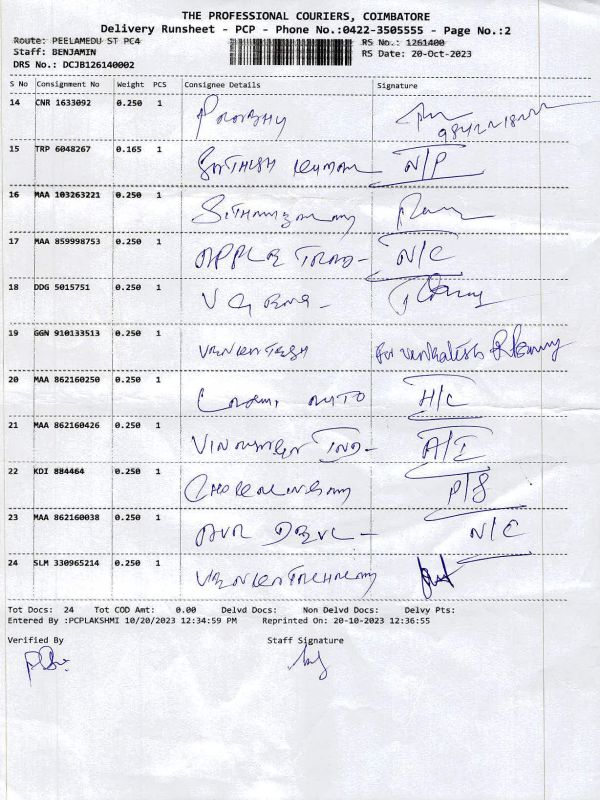 THE PROFESSIONAL COURIERS, COIMBATORE
Delivery Runsheet - PCP - Phone No.:0422-3505555 - Page No.:2
Route: PEELAMEDU ST PC4 RS No.: 1261400
Staff: BENJAMIN RS Date: 20-Oct-2023
DRS No.: DCJB126140002
S No Consignment No Weight PCS Consignee Details Signature
14 CNR 1633092 0.250 1
15 TRP 6048267 0.165 1 SATHISH KUMAR N/P
16 MAA 103263221 0.250 1
17 MAA 859998753 0.250 1 APPLE TRAD- N/C
18 DDG 5015751 0.250 1 V G ENG -
19 GGN 910133513 0.250 1 VENKATESH For Venkatesh
20 MAA 862160250 0.250 1 AUTO H/C
21 MAA 862160426 0.250 1 IND- A/I
22 KDI 884464 0.250 1 P/S
23 MAA 862160038 0.250 1 N/C
24 SLM 330965214 0.250 1
Tot Docs: 24 Tot COD Amt: 0.00 Delvd Docs: Non Delvd Docs: Delvy Pts:
Entered By :PCPLAKSHMI 10/20/2023 12:34:59 PM Reprinted On: 20-10-2023 12:36:55
Verified By Staff Signature